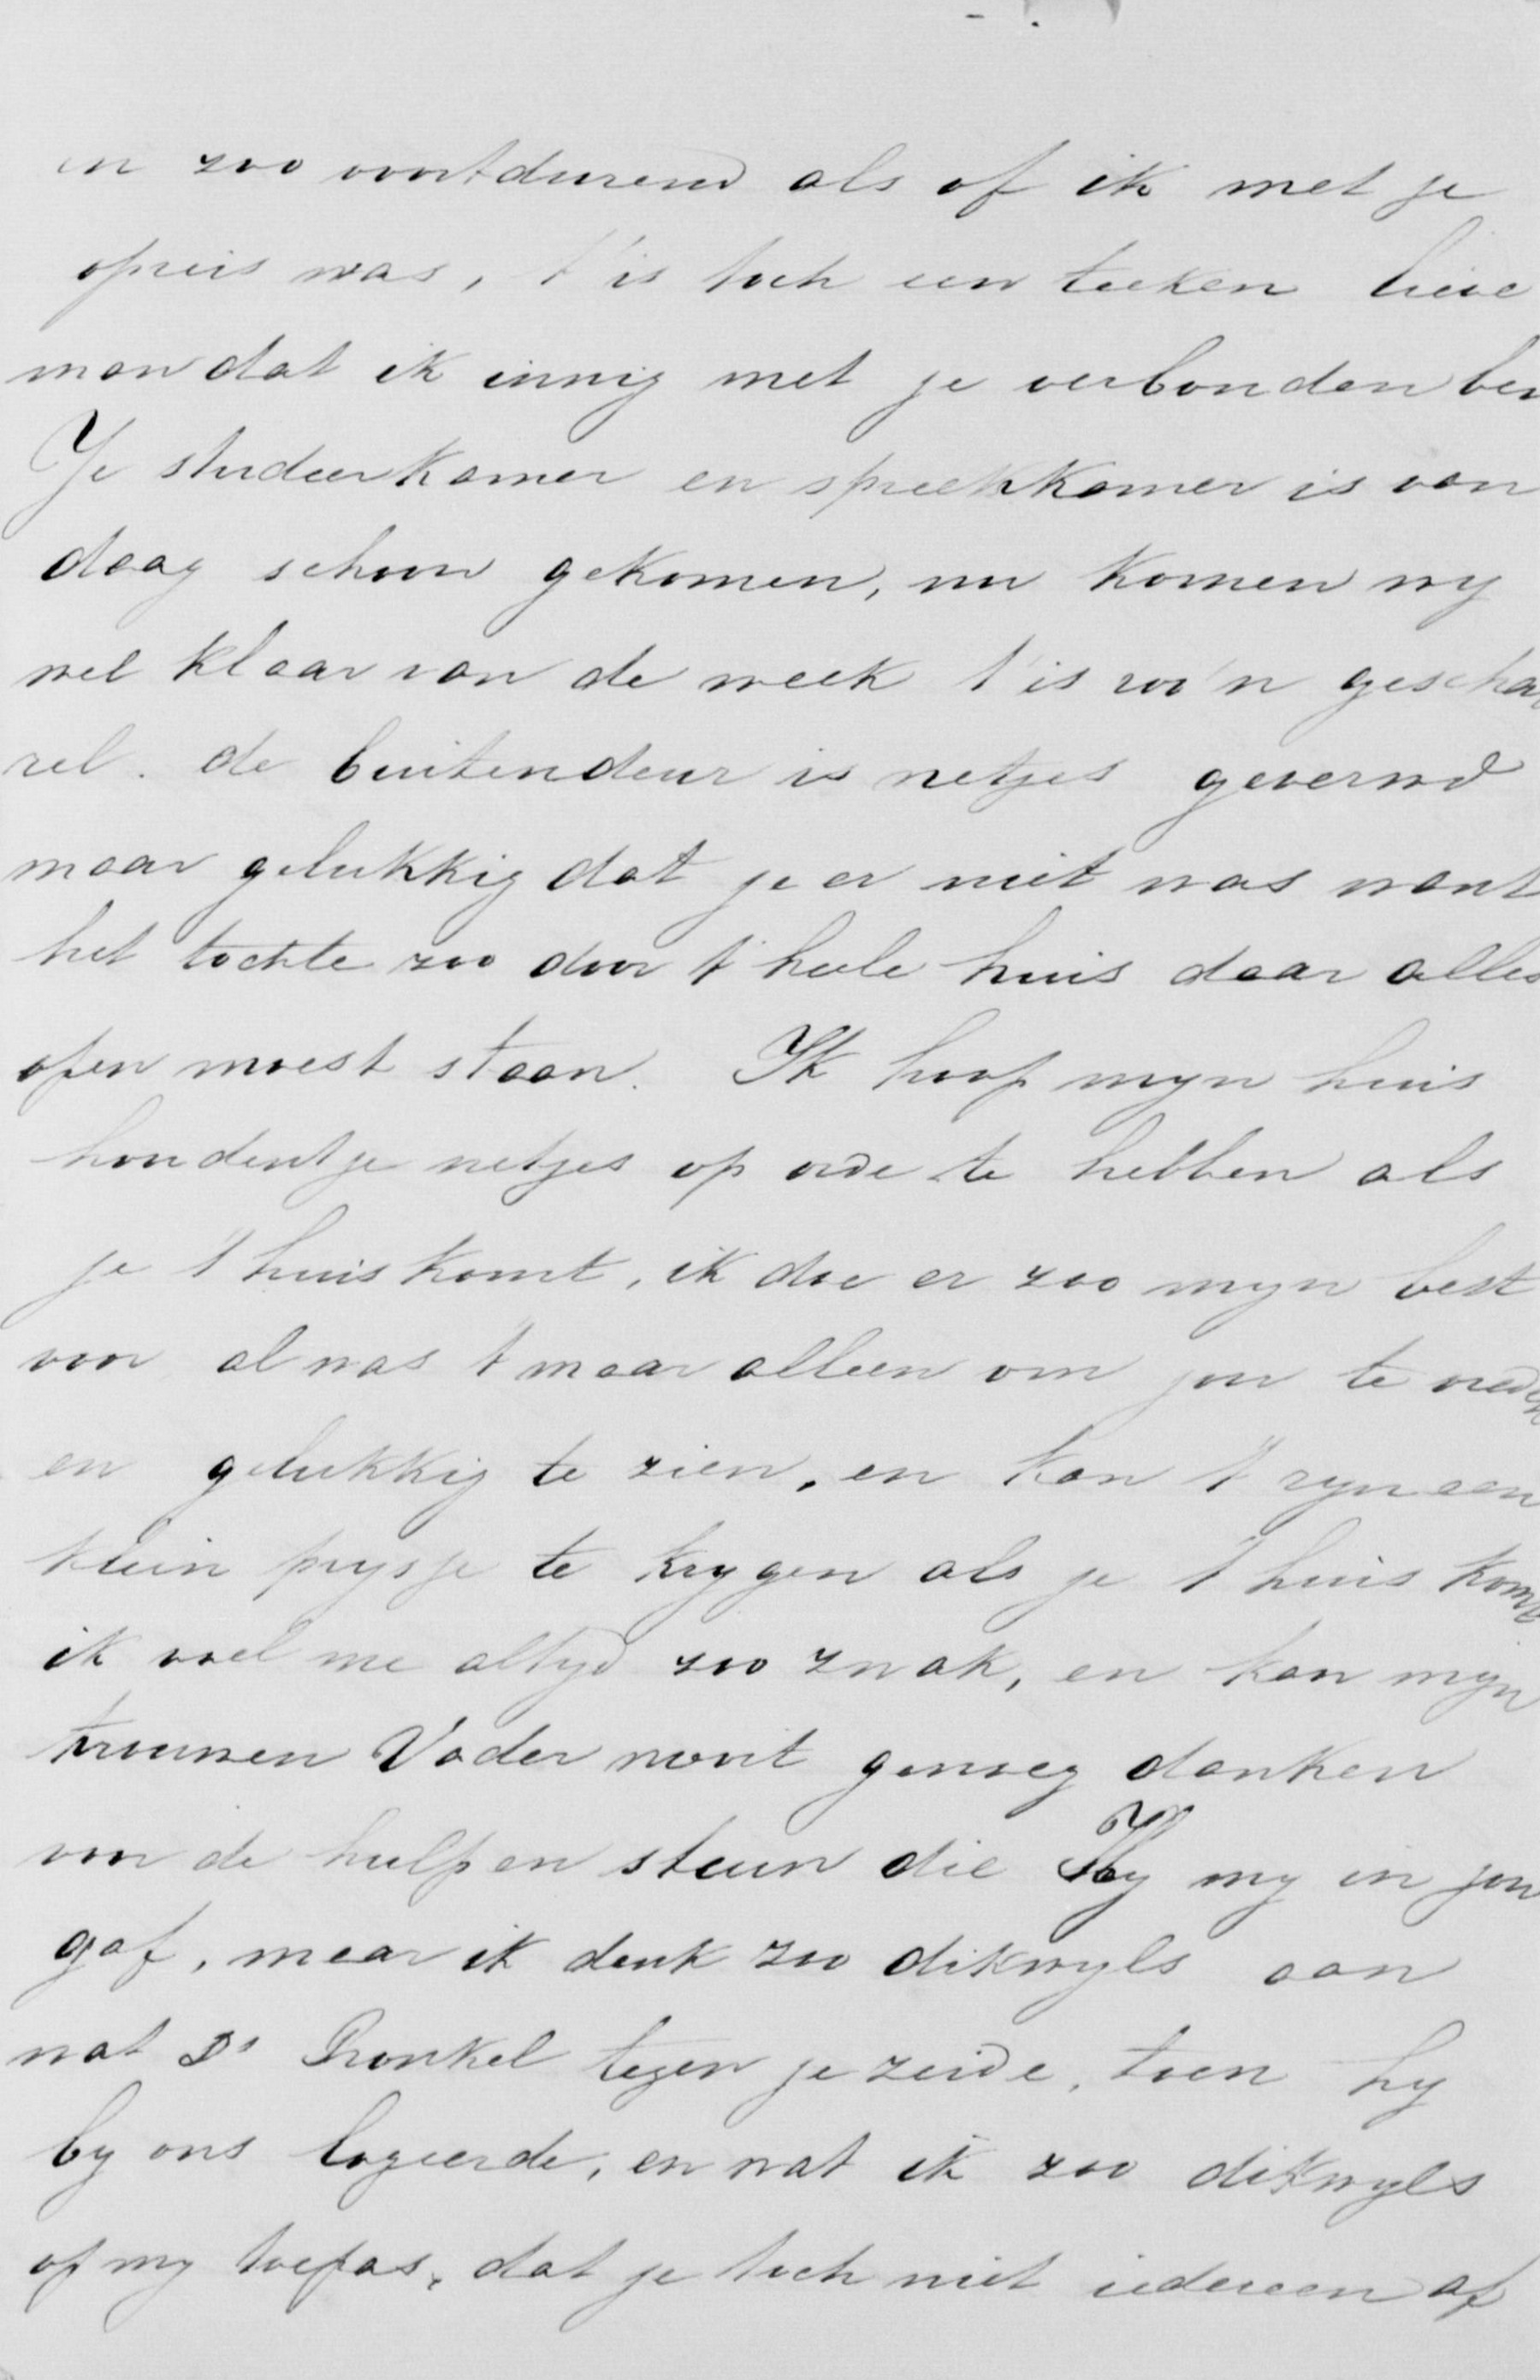 en zoo voortdurend als of ik met je
opreis was, t' is toch een teeken lieve
man dat ik innig met je verbonden ben
Je studeerkamer en spreekkamer is van
daag schoon gekomen, nu komen wy
wel klaar van de week t' is zoo'n geschar
rel. de buitendeur is netjes geverwd
maar gelukkig dat je er niet was want
het tochte zoo door t' heele huis daar alles
open moest staan. Ik hoop myn huis
houdentje netjes op orde te hebben als
je t' huis komt, ik doe er zoo myn best
voor al was t' maar alleen om jou te vreden
en gelukkig te zien, en kan t' zyn een
klein prysje te krygen als je t' huis komt
ik voel me altyd zoo zwak, en kan mijn
trouwen Vader nooit genoeg danken
voor de hulp en steun die Hy my in jou
gaf, maar ik denk zoo dikwyls aan
wat Ds Pronkel tegen je zeide, toen hy
by ons logeerde, en wat ik zoo dikwyls
op my toepas, dat je toch niet iedereen af